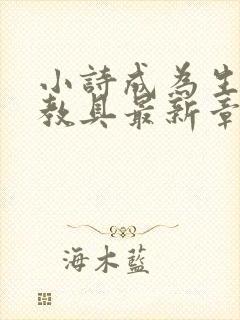 小詩成為生
教具最新章
海木藍